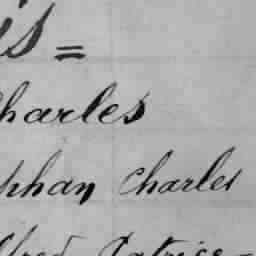 is =
harles
phan Charles
lfred Patrice-